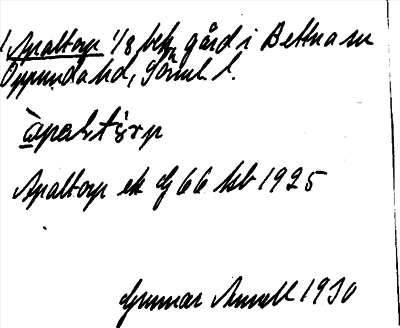 Apaltorp 1/8 hek gård i Bettna sn
Oppunda hd, Söml l.
àpalstòrp
Apaltorp ek G 66 Kb 1925
Gunnar Arnell 1930